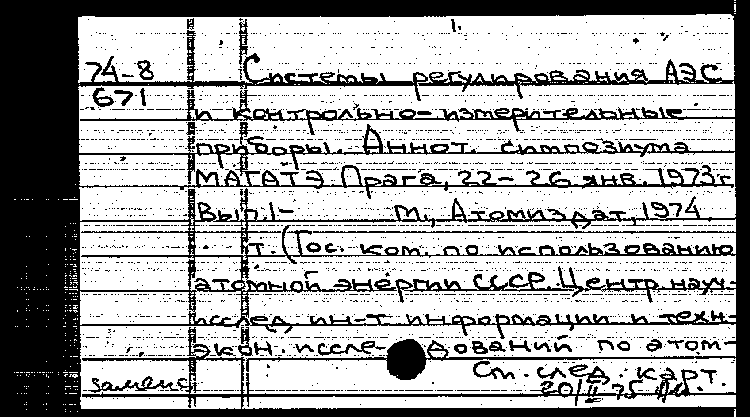 1.
74-8 Системы регулирования АЭС
671
и контрольно-измерительные
приборы. Аннот. симпозиума
МАГАТЭ Прага, 22-26 янв. 1973г.
Вып.1- М., Атомиздат, 1974.
т. (Гос. ком. по использованию
атомной энергии СССР. Центр. науч.-
исслед. ин-т информации и техн-
экон. иссле-дований по атом-
См. след. карт.
замена 20/II 75